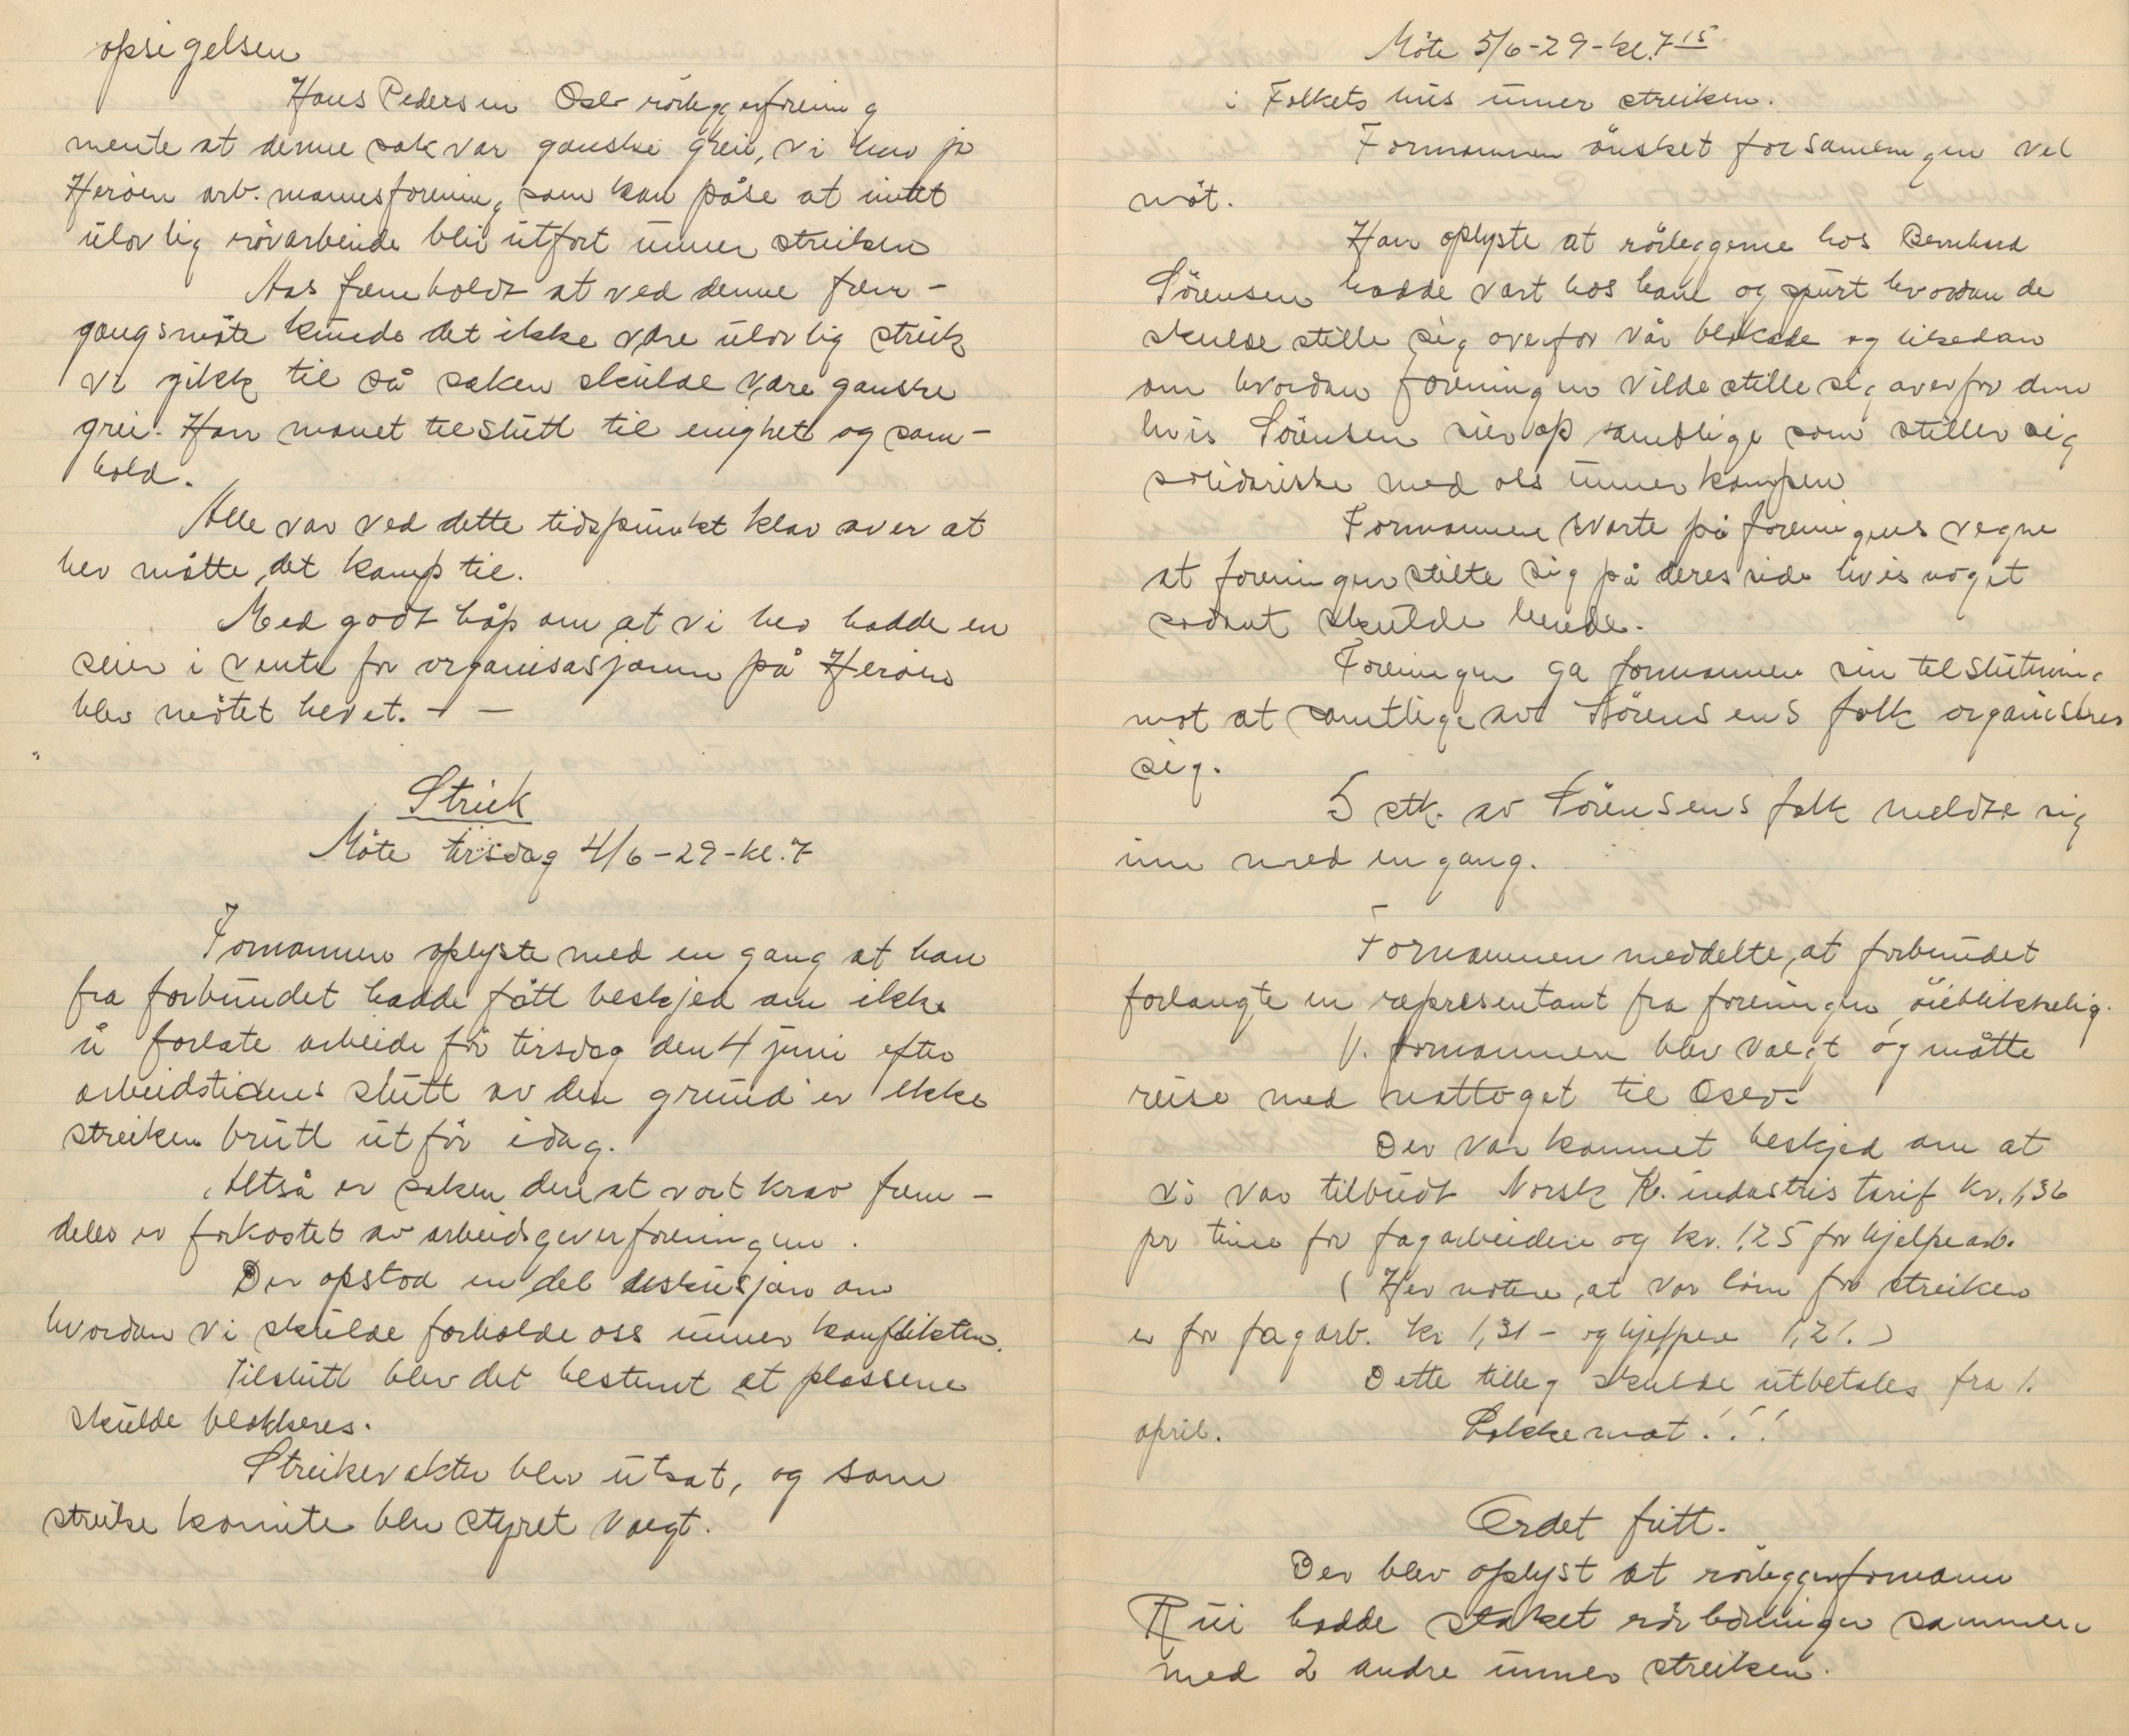 opsigelsen
Hans Pedersen Oslo rörleggerforening
mente at denne sak var ganske grei, vi har jo
Heröen arb. mannsforening som kan påse at intet
ulovlig rörarbeide blir utfört unner streiken
Aas fremholdt at ved denne frem-
gangsmåte kunde det ikke være ulovlig streik
vi gikk til så saken skulde være ganske
grei. Han manet tilslutt til enighet og sam-
hold.
Alle var ved dette tidspunkt klar over at
her måtte det kamp til.
Med godt håp om at vi her hadde en
seier i vente for organisasjonen på Heröen
blev mötet hevet. - -
Streik
Möte tirsdag 4/6-29-kl. 7
Formannen oplyste med en gang at han
fra forbundet hadde fått beskjed om ikke
å forlate arbeide för tirsdag den 4 juni efter
arbeidstidens slutt av den grund er ikke
streiken brutt ut för idag.
Altså er saken den at vort krav frem-
deles er forkastet av arbeidsgiverforeningen.
Der opstod en del diskusjon om
hvordan vi skulde forholde oss unner konflikten.
Tilslutt blev det bestemt at plassene
skulde blokkeres.
Streikevakter blev utsat, og som
streike komite blev styret valgt.
Möte 5/6-29-kl. 7 15
i Folkets hus unner streiken.
Formannen önsket forsamlingen vel
möt.
Han oplyste at rörleggerne hos Bernhard
Sörensen hadde vært hos ham og spurt hvordan de
skulde stille sig overfor vår blokade og likedan
om hvordan foreningen vilde stille sig overfor dem
hvis Sörensen sier op samtlige som stiller sig
solidariske med oss unner kampen
Formannen svarte på foreningens vegne
at foreningen stilte sig på deres side hvis noget
sådant skulde hende.
Foreningen ga formannen sin tilslutning
mot at samtlige av Sörensens folk organiseres
sig.
5 stk. av Sörensens folk meldte sig
inn med en gang.
Formannen meddelte, at forbundet
forlangte en representant fra foreningen öieblikkelig.
V. formannen blev valgt og måtte
reise med nattoget til Oslo.
Der var kommet beskjed om at
vi var tilbudt Norsk K. industris tarif kr. 1,36
pr time for fagarbeidere og kr. 1,25 for hjelpearb.
(Her notere, at vor lönn för streiken
er for fagarb. kr 1,31 - og hjelpere 1,21.)
Dette tilleg skulde utbetales fra 1.
april. Lokkemat!!!
Ordet fritt.
Der blev oplyst at rörleggerformann
Rui hadde staket rörledninger sammen
med 2 andre unner streiken.